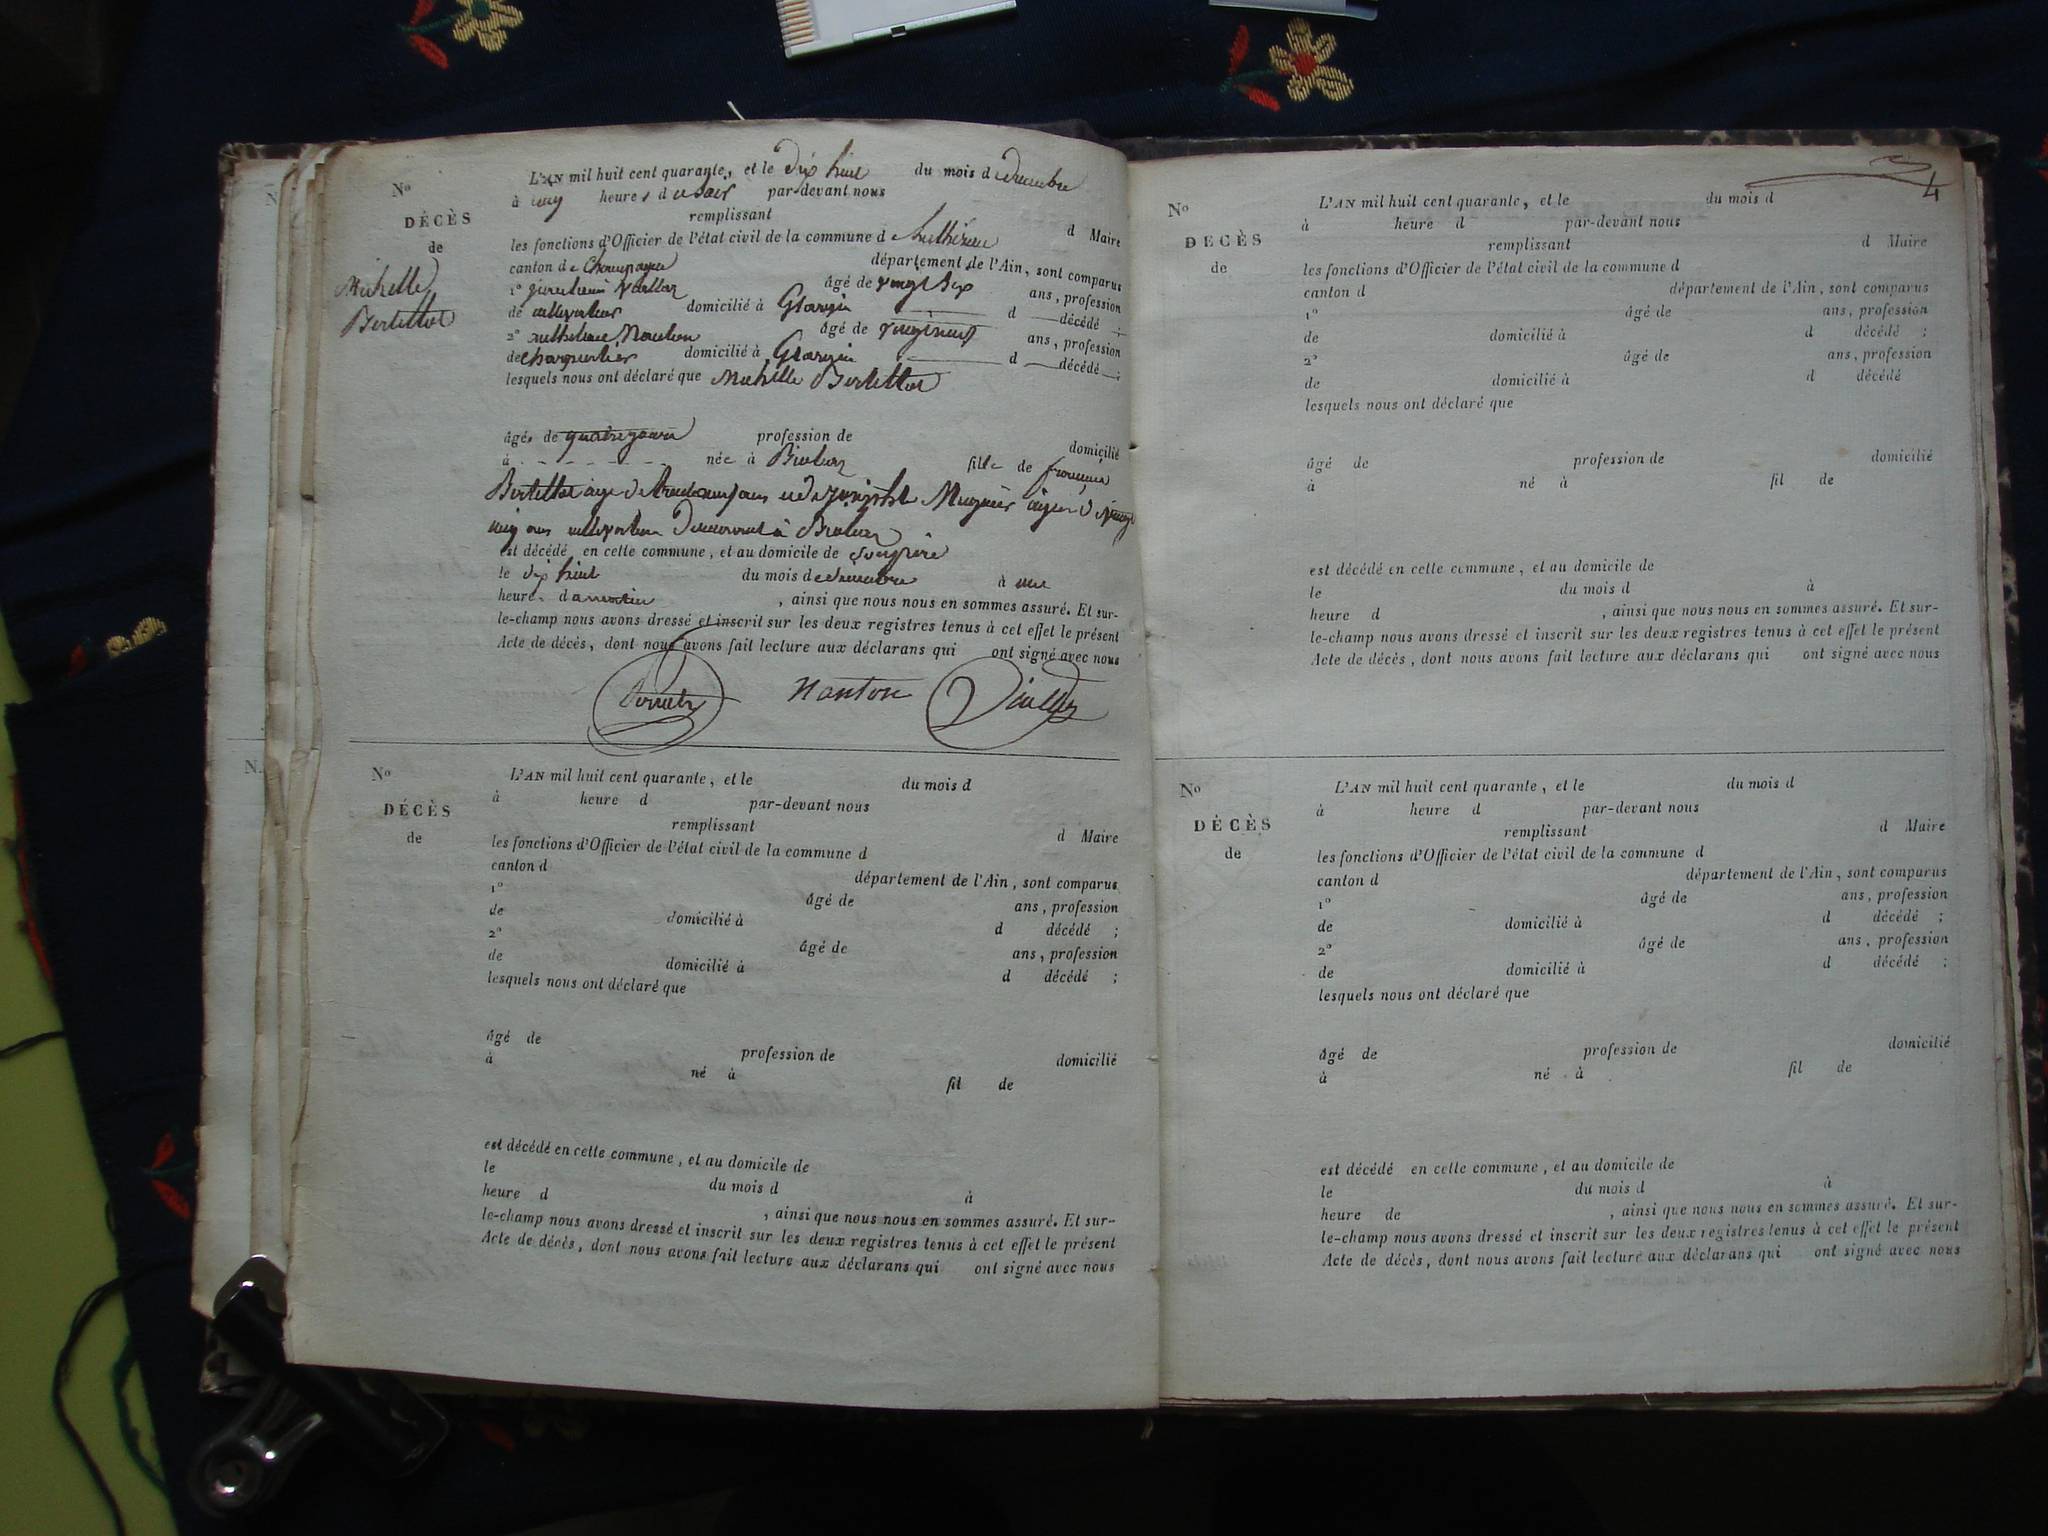 N
N.
Nº
DÉCÈS
de
Michelle
Bertettet
L'AN mil huit cent quarante, et le dix huit du mois d
à cinq heures du soir par-devant nous
remplissant
d Maire
les fonctions d'Officier de l'état civil de la commune d
canton de Champagne département de l'Ain, sont comparus
1º âgé de vingt six ans, profession
de cultivateur domicilié à d décédé ;
2º âgé de ans, profession
de domicilié à d décédé ;
lesquels nous ont déclaré que Michelle
âgée de quatre jours profession de domicilié
à née à fille de
cinq ans demeurant à
est décédé en cette commune, et au domicile de son père
le dix huit du mois de à une
heure du matin, ainsi que nous nous en sommes assuré. Et sur-
le-champ nous avons dressé et inscrit sur les deux registres tenus à cet effet le présent
Acte de décès, dont nous avons fait lecture aux déclarans qui ont signé avec nous
Nanton
Nº
DÉCÈS
de
L'AN mil huit cent quarante, et le du mois d
à heure d par-devant nous
remplissant
d Maire
les fonctions d'Officier de l'état civil de la commune d
canton d département de l'Ain, sont comparus
1º âgé de ans, profession
de domicilié à d décédé ;
2º âgé de ans, profession
de domicilié à d décédé ;
lesquels nous ont déclaré que
âgé de profession de domicilié
à né à fil de
est décédé en cette commune, et au domicile de
le du mois d à
heure d , ainsi que nous nous en sommes assuré. Et sur-
le-champ nous avons dressé et inscrit sur les deux registres tenus à cet effet le présent
Acte de décès, dont nous avons fait lecture aux déclarans qui ont signé avec nous
4
Nº
DÉCÈS
de
L'AN mil huit cent quarante, et le du mois d
à heure d par-devant nous
remplissant d Maire
les fonctions d'Officier de l'état civil de la commune d
canton d département de l'Ain, sont comparus
1º âgé de ans, profession
de domicilié à d décédé ;
2º âgé de ans, profession
de domicilié à d décédé
lesquels nous ont déclaré que
âgé de profession de domicilié
à né à fil de
est décédé en cette commune, et au domicile de
le du mois d à
heure d , ainsi que nous nous en sommes assuré. Et sur-
le-champ nous avons dressé et inscrit sur les deux registres tenus à cet effet le présent
Acte de décès, dont nous avons fait lecture aux déclarans qui ont signé avec nous
Nº
DÉCÈS
de
L'AN mil huit cent quarante, et le du mois d
à heure d par-devant nous
remplissant d Maire
les fonctions d'Officier de l'état civil de la commune d
canton d département de l'Ain, sont comparus
1º âgé de ans, profession
de domicilié à d décédé ;
2º âgé de ans, profession
de domicilié à d décédé ;
lesquels nous ont déclaré que
âgé de profession de domicilié
à né à fil de
est décédé en cette commune, et au domicile de
le du mois d à
heure de , ainsi que nous nous en sommes assuré. Et sur-
le-champ nous avons dressé et inscrit sur les deux registres tenus à cet effet le présent
Acte de décès, dont nous avons fait lecture aux déclarans qui ont signé avec nous